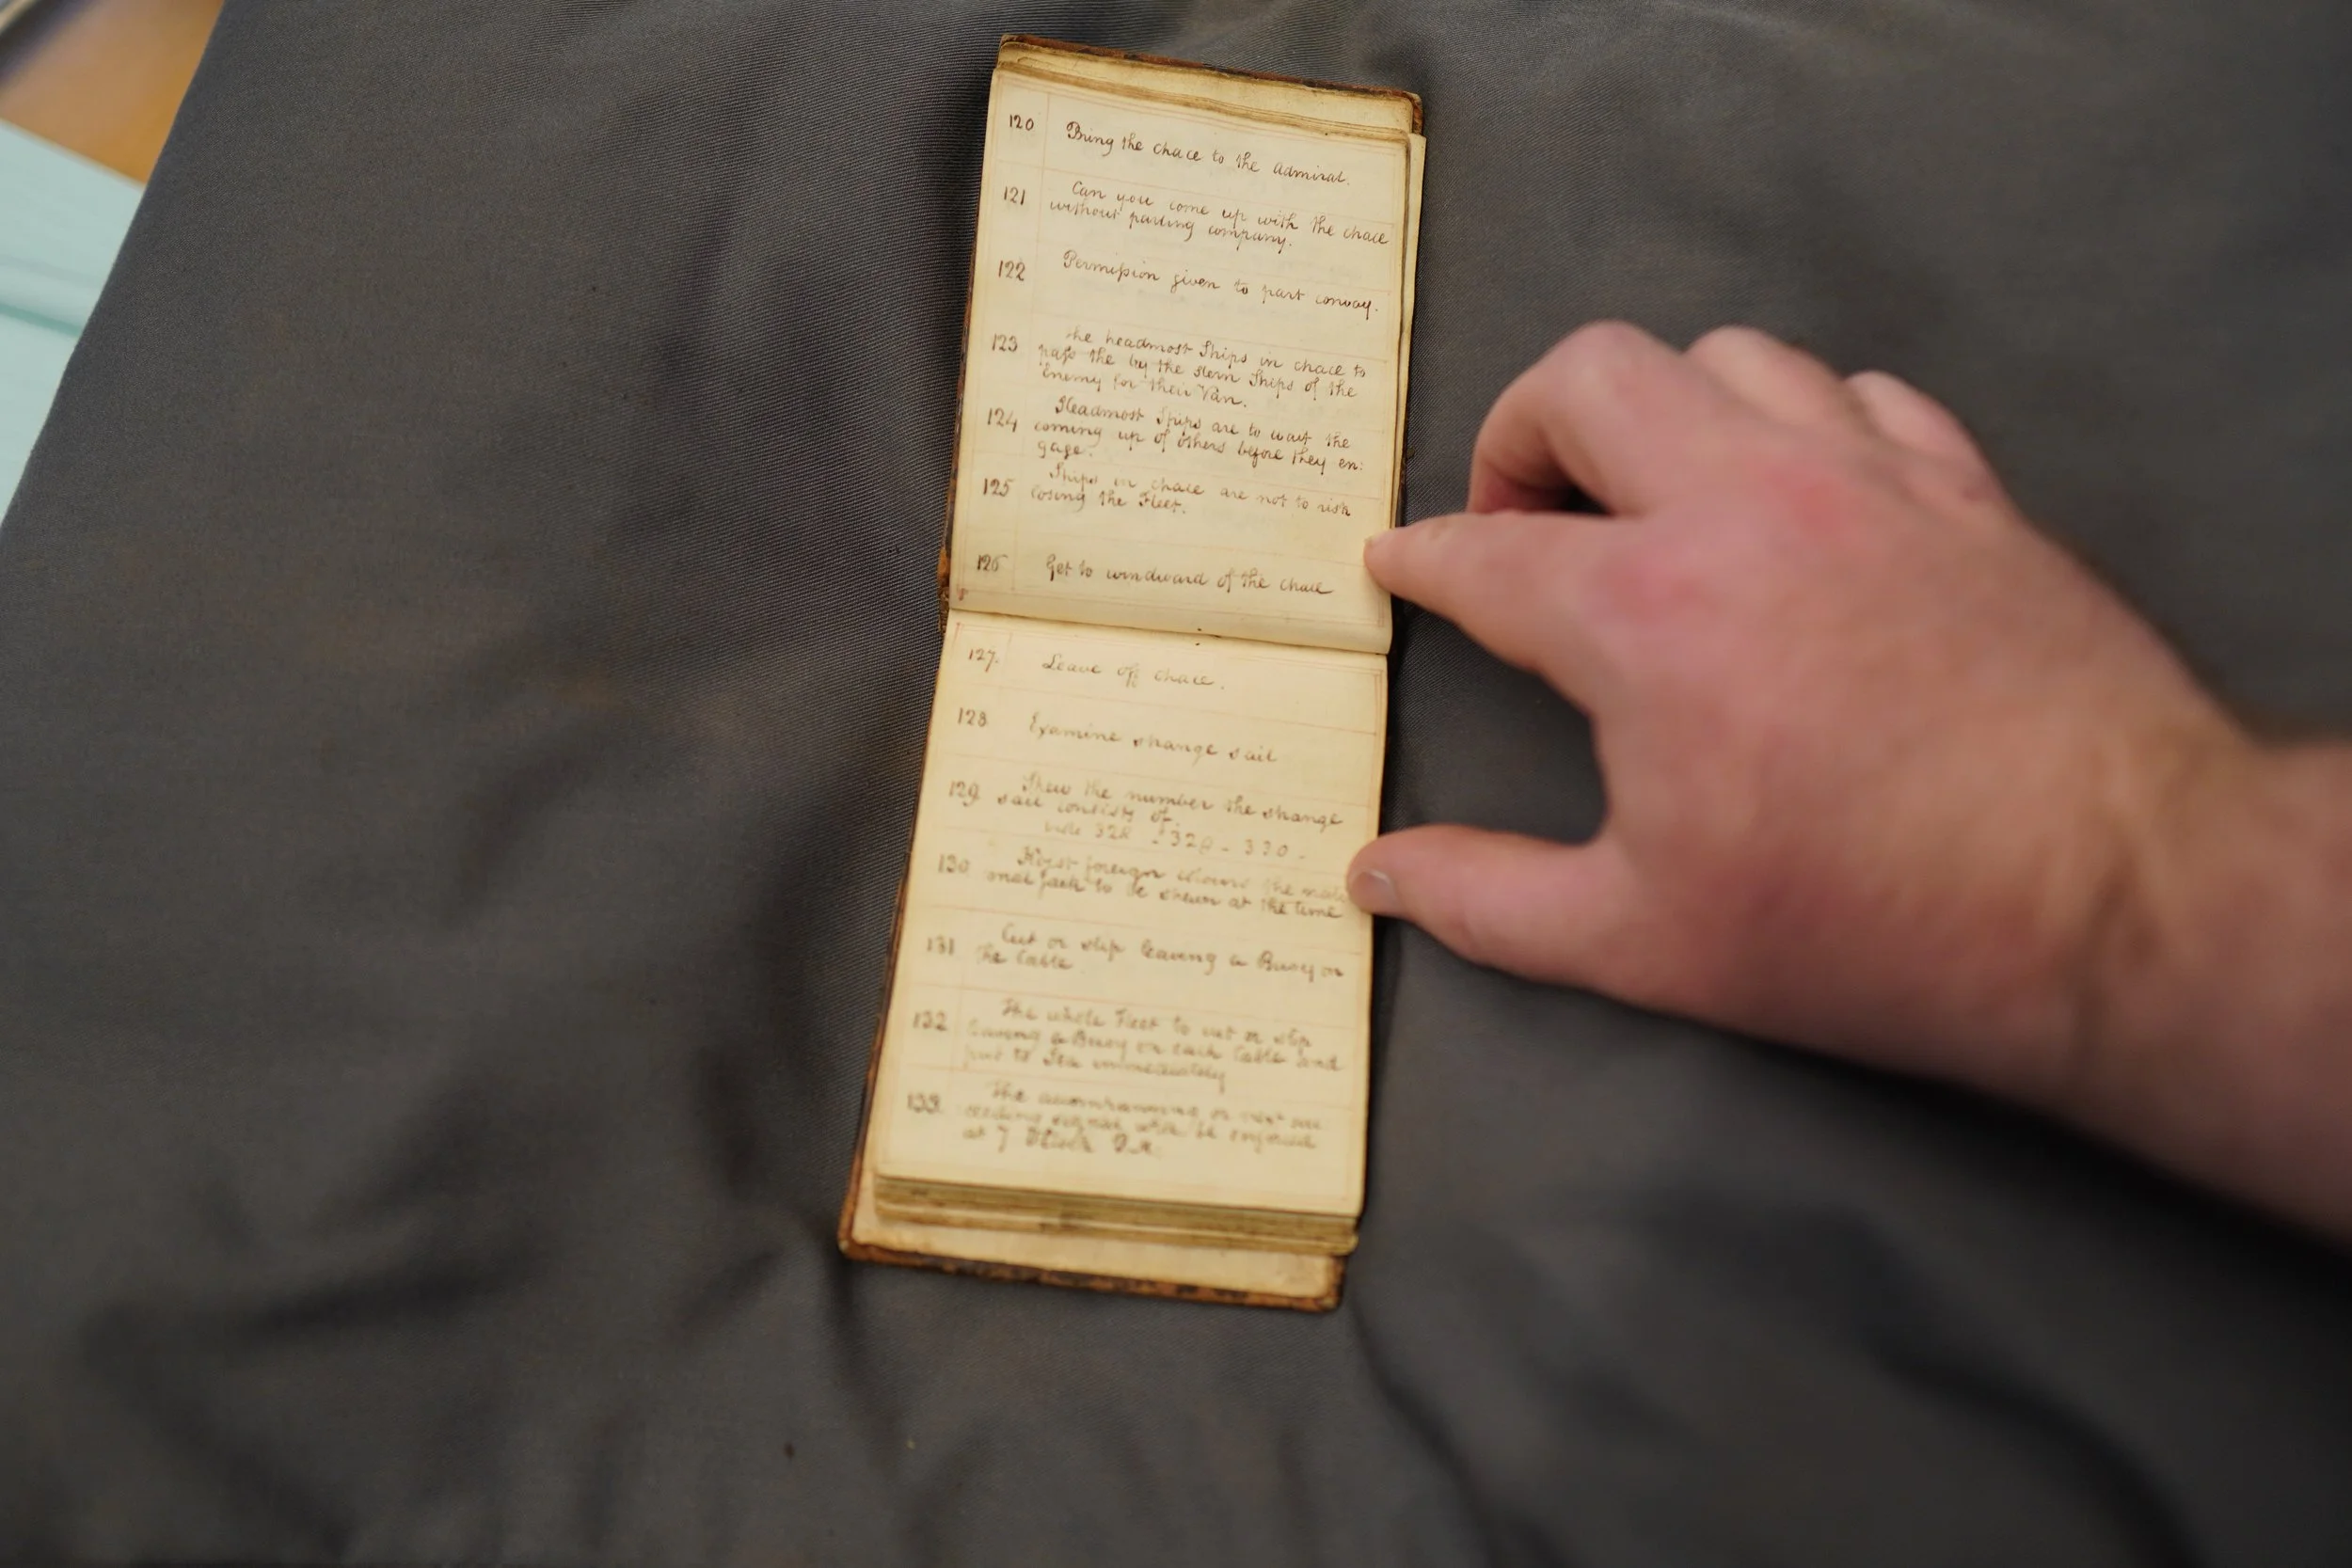 120 Bring the chace to the Admiral.
121 Can you come up with the chace
without parting company.
122 Permiſsion given to part convoy.
123 The headmost Ships in chace to
paſs the by the stern Ships of the
Enemy for their Van.
124 Headmost Ships are to wait the
coming up of others before they en:
gage.
125 Ships in chace are not to risk
losing the Fleet.
126 Get to windward of the chace
127. Leave off chace.
128 Examine strange sail
129 Shew the number the strange
sail consists of
vide 328 - 329 - 330 -
130 Hoist foreign colours the
jack to be shewn at the time
131 Cut or slip leaving a Buoy on
the Cable
132 The whole Fleet to cut or slip
leaving a Buoy on each Cable and
put to Sea immediately
133. The accompanying or next
signal will be enforced
at 7 OClock